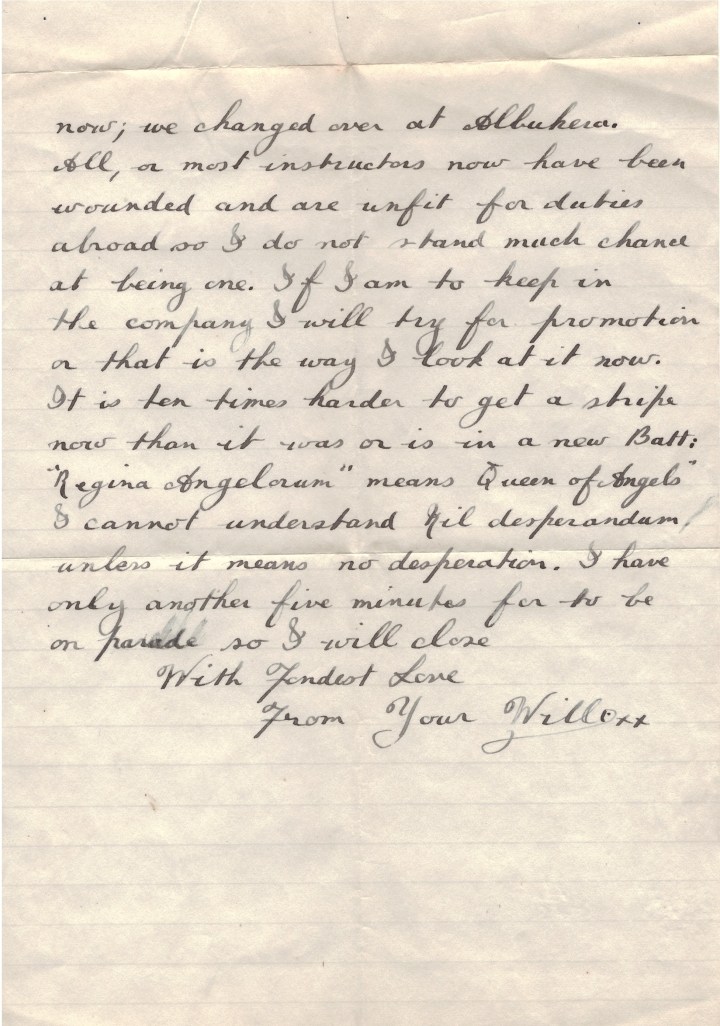 now; we changed over at Albuhera.
All, or most instructors now have been
wounded and are unfit for duties
abroad so I do not stand much chance
at being one. If I am to keep in
the company I will try for promotion
or that is the way I look at it now.
It is ten times harder to get a stripe
now than it was or is in a new Batt:
"Regina Angelorum" means Queen of Angels"
I cannot understand Nil desperandum,
unless it means no desperation. I have
only another five minutes for to be
on parade so I will close
With Fondest Love
From Your Will xx